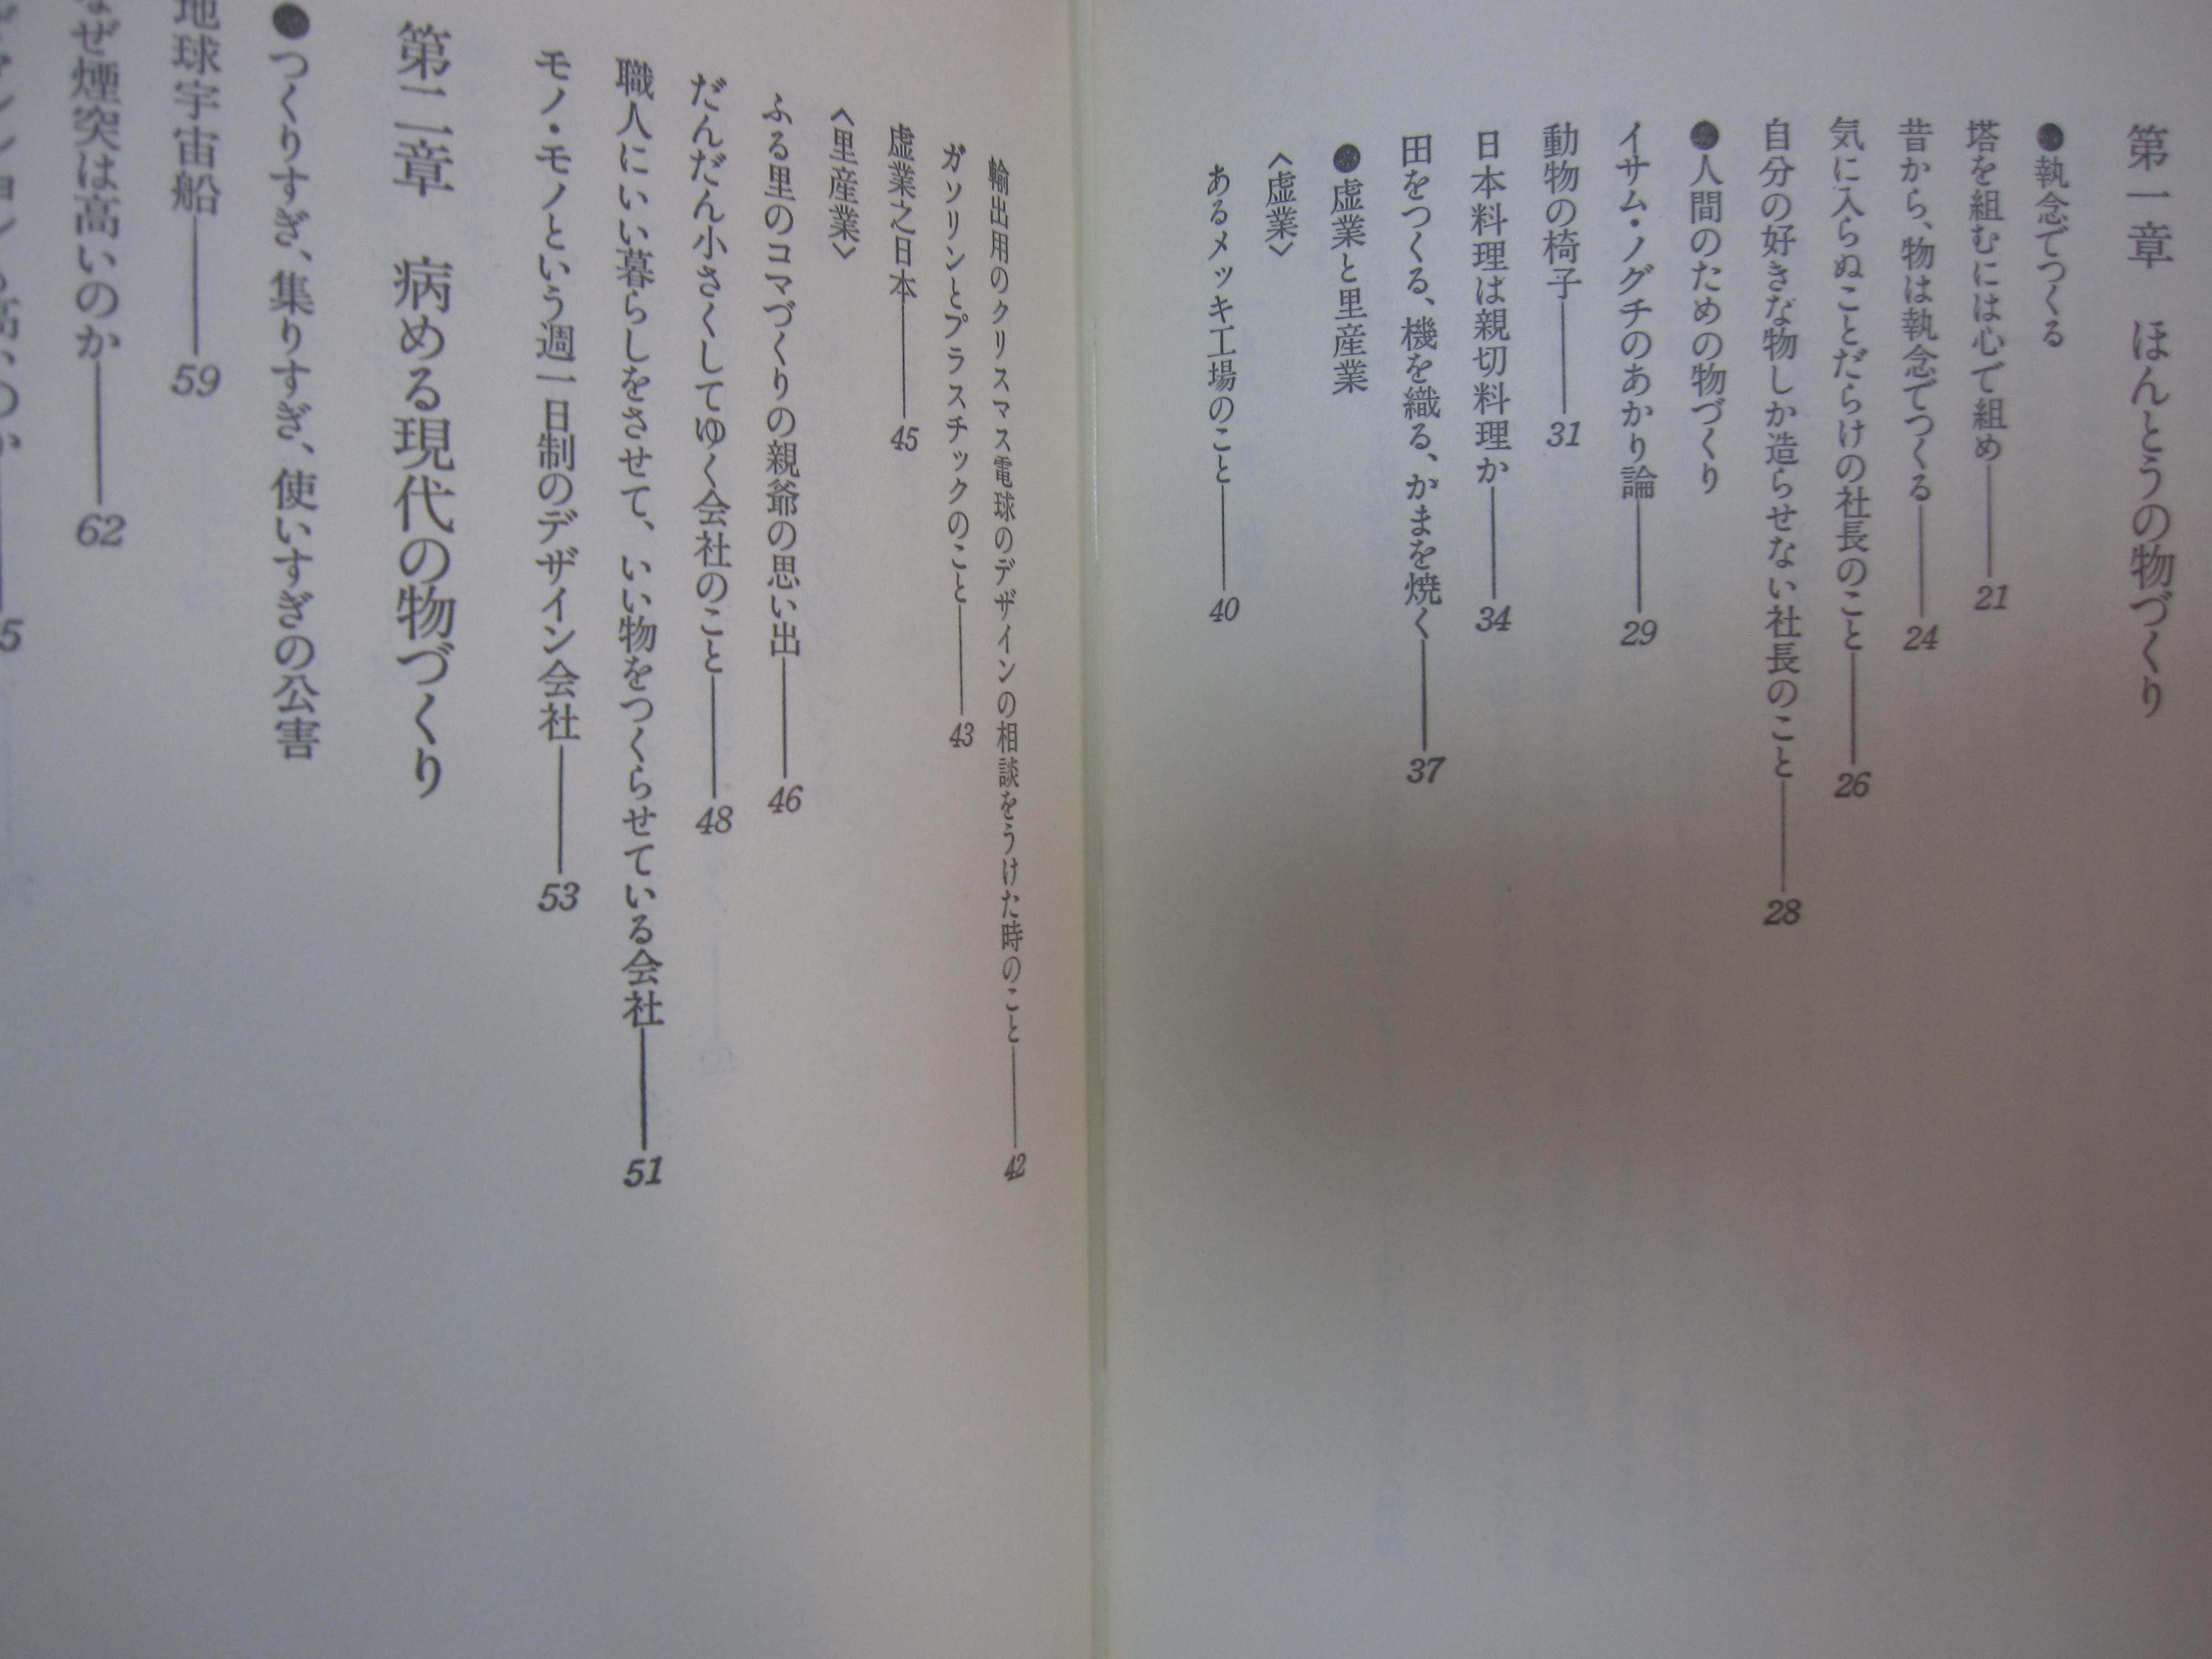 第一章　ほんとうの物づくり
●執念でつくる
塔を組むには心で組め——21
昔から、物は執念でつくる——24
気に入らぬことだらけの社長のこと——26
自分の好きな物しか造らせない社長のこと——28
●人間のための物づくり
イサム・ノグチのあかり論——29
動物の椅子——31
日本料理は親切料理か——34
田をつくる、機を織る、かまを焼く——37
●虚業と里産業
〈虚業〉
あるメッキ工場のこと——40
輸出用のクリスマス電球のデザインの相談をうけた時のこと——42
ガソリンとプラスチックのこと——43
虚業之日本——45
〈里産業〉
ふる里のコマづくりの親爺の思い出——46
だんだん小さくしてゆく会社のこと——48
職人にいい暮らしをさせて、いい物をつくらせている会社——51
モノ・モノという週一日制のデザイン会社——53
第二章　病める現代の物づくり
●つくりすぎ、集りすぎ、使いすぎの公害
地球宇宙船——59
なぜ煙突は高いのか——62